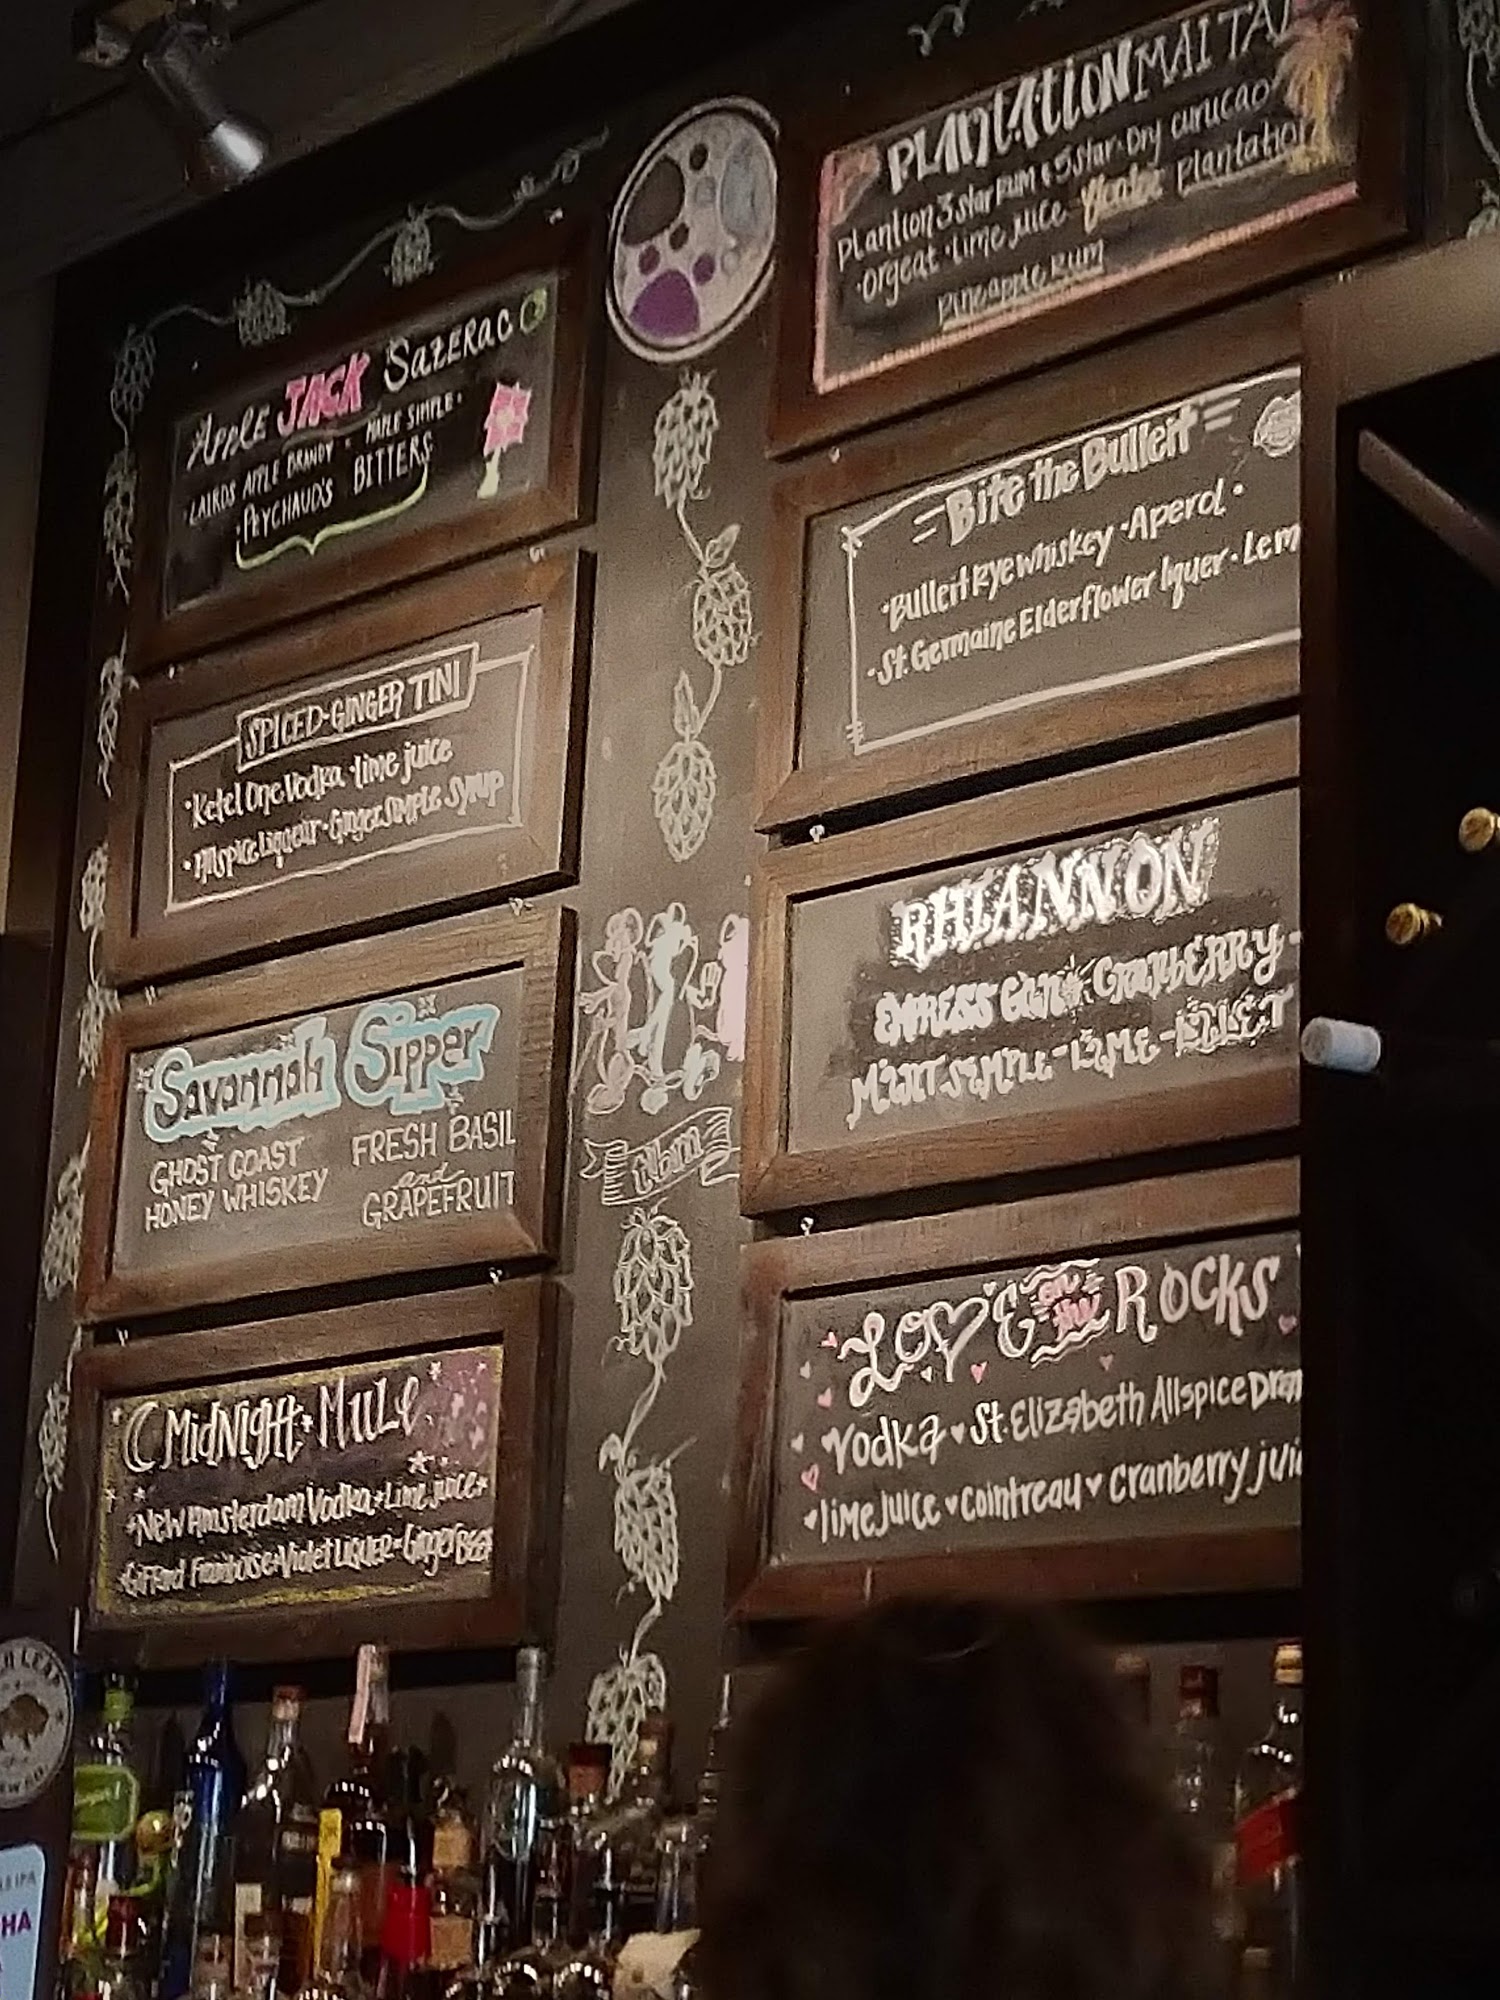 Apple JACK SAZERAC
·LAIRDS APPLE BRANDY · MAPLE SIMPLE·
·PEYCHAUD'S BITTERS
SPICED-GINGER TINI
·Ketel One Vodka ·lime juice
·Allspice Liqueur·Ginger simple syrup
Savannah Sipper
GHOST COAST
HONEY WHISKEY
FRESH BASIL
and
GRAPEFRUIT
MidNight MULE
New Amsterdam Vodka Lime juice
Giffard Framboise Violet LIQUER Ginger BEER
PLANTATION MAI TAI
Plantion 3 star RUM & 5 star · Dry curucao
·Orgeat ·lime juice Plantation
Pineapple Rum
Bite the Bulleit
·Bulleit Rye whiskey ·Aperol·
·St. Germaine Elderflower liquer · Lem
RHIANNON
EMPRESS GIN CRANBERRY-
MINT SIMPLE - LIME -
LOVE ON THE ROCKS
Vodka St. Elizabeth Allspice Dram
lime juice cointreau cranberry jui
HA